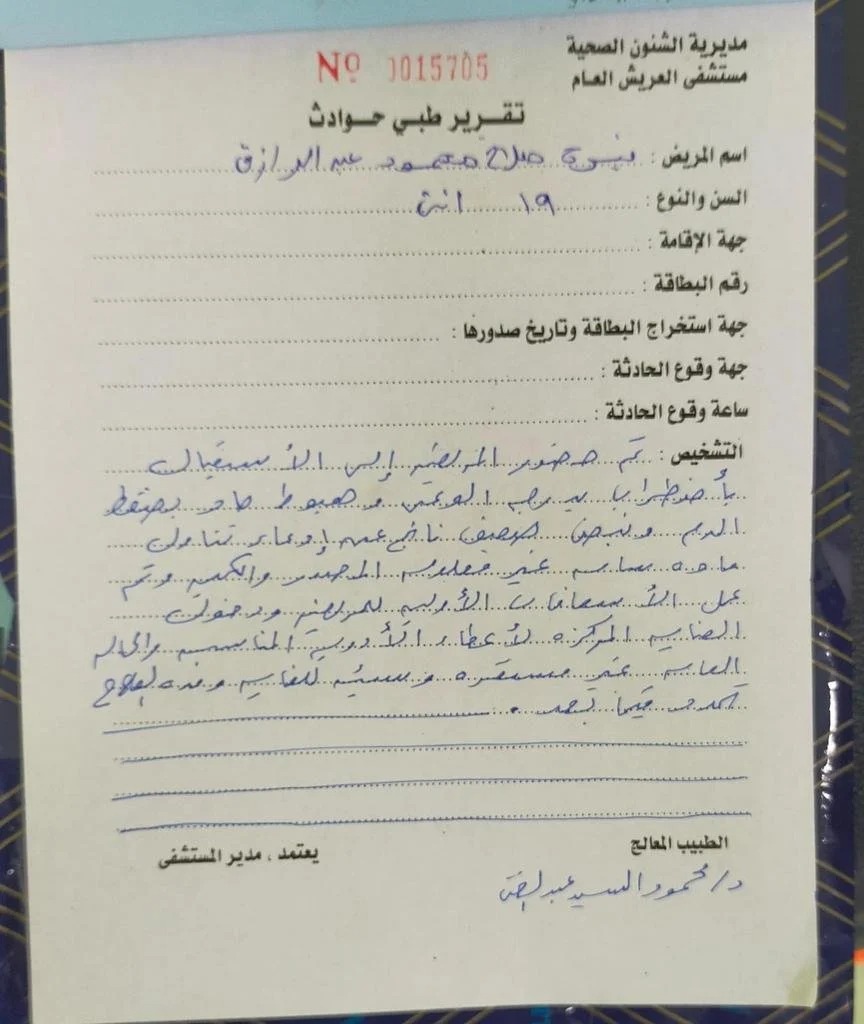 مديرية الشئون الصحية
مستشفى العريش العام
Nº 0015705
تقـــرير طبـي حــوادث
اسم المريض : نيرة صلاح محمود عبد الرازق
السن والنوع : ١٩ انثى
جهة الإقامة :
رقم البطاقة :
جهة استخراج البطاقة وتاريخ صدورها :
جهة وقوع الحادثة :
ساعة وقوع الحادثة :
التشخيص : تم حضور المريضه إلى الأستقبال
بأضطراب بدرجه الوعى وهبوط حاد بضغط
الدم ونبض ضعيف ناتج عن إدعاء تناول
ماده سامه غير معلومه المصدر والكميه وتم
عمل الأسعافات الأوليه للمريضه ودخول
العنايه المركزه لأعطاء الأدوية المناسبه والحاله
العامه غير مستقره وسيئه للغايه ومده العلاج
تحدد فيما بعد .
الطبيب المعالج
يعتمد ، مدير المستشفى
د/ محمود السيد عبد